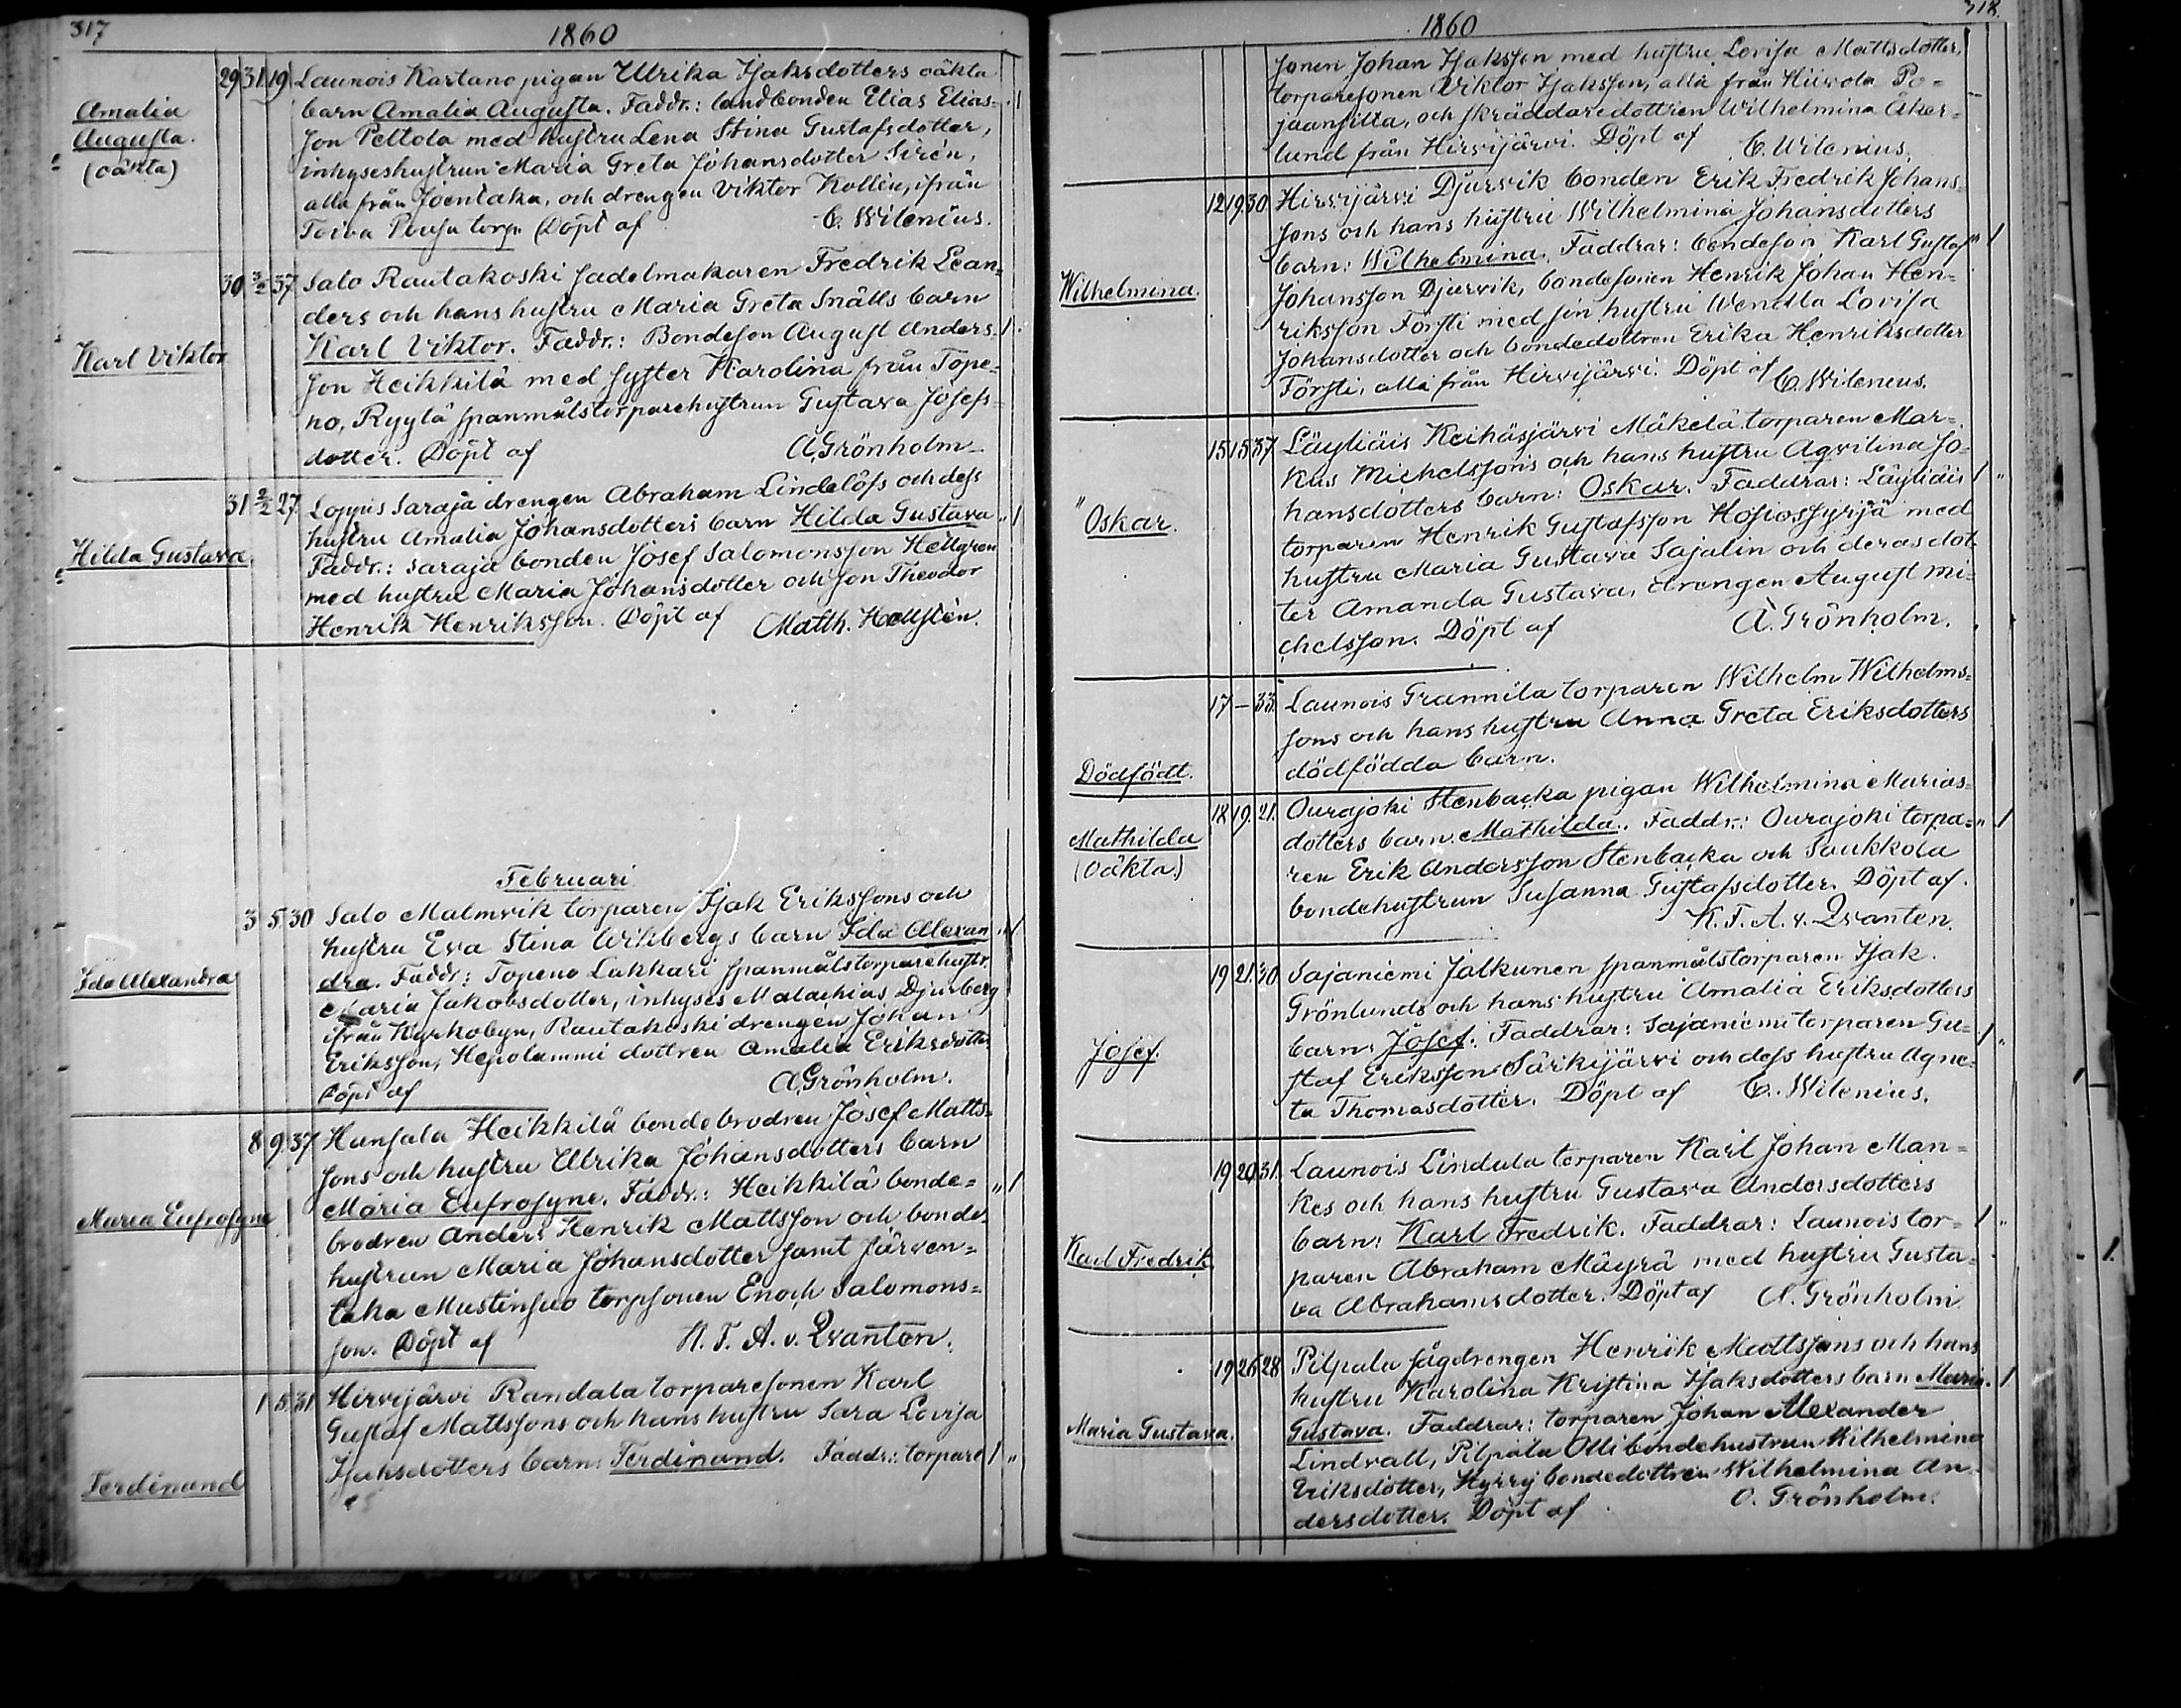 317
1860
Amalia
Augusta.
(oäkta)
29 31 19. Launois Kartano pigan Ulrika Isaksdotters oäkta
barn Amalia Augusta. Faddr.: landbonden Elias Elias-
son Peltola med hustru Lena Stina Gustafsdotter,
inhyseshustrun Maria Greta Johansdotter Sirén,
alla från Joentaka, och drengen Viktor Kollin, ifrån
Toiva torp. Döpt af C. Wilenius.
Karl Viktor
30 3/2 37 Salo Rautakoski sadelmakaren Fredrik Lean-
ders och hans hustru Maria Greta Snälls barn
Karl Viktor. Faddr.: Bondeson August Anders- 1
son Heikkilä med syster Karolina från Tope-
no, Ryylä spanmålstorparehustrun Gustava Josefs-
dotter. Döpt af A. Grönholm
Hilda Gustava
31 2/2 27. Loppis Saraja drengen Abraham Lindelöfs och dess
hustru Amalia Johansdotters barn Hilda Gustava " 1
Faddr.: Saraja bonden Josef Salomonsson Hellgren
med hustru Maria Johansdotter och son Theodor
Henrik Henriksson. Döpt af Matth. Hellstén.
Februari
Ida Alexandra
3 5 30 Salo Malmvik torparen Isak Erikssons och
hustru Eva Stina Wikbergs barn Ida Alexan " 1
dra. Faddr: Topeno Lukkari spanmålstorparehustr.
Maria Jakobsdotter, inhyses Malachias Djurberg
ifrån Kyrkobyn, Rautakoski drengen Johan
Eriksson, Hepolammi dottren Amalia Eriksdotter.
Döpt af A. Grönholm.
Maria Eufrosyne
8 9. 37 Hunsala Heikkilä bondebrodren Josef Matts-
sons och hustru Ulrika Johansdotters barn
Maria Eufrosyne. Faddr.: Heikkilä bonde- " 1
brodren Anders Henrik Mattsson och bonde-
hustrun Maria Johansdotter samt Järven-
taka Mustinsuo torpsonen Enoch Salomons-
son. Döpt af K. F. A. v. Qvanten.
Ferdinand
1 5 31 Hirvijärvi Randala torparesonen Karl
Gustaf Mattssons och hans hustru Sara Lovisa
Isaksdotters barn: Ferdinand. Faddr.: torpare 1 "
1860
318.
sonen Johan Isaksson med hustru Lovisa Mattsdotter,
torparesonen Viktor Isaksson, alla från Po-
jaansilta, och skräddaredottren Wilhelmina Åker-
lund från Hirvijärvi. Döpt af C. Wilenius.
Wilhelmina.
12 19. 30. Hirvijärvi Djurvik bonden Erik Fredrik Johans-
sons och hans hustru Wilhelmina Johansdotters
barn: Wilhelmina. Faddrar: bondeson Karl Gustaf " 1
Johansson Djurvik, bondesonen Henrik Johan Hen-
riksson Försti med sin hustru Wendla Lovisa
Johansdotter och bondedottren Erika Henriksdotter
Försti, alla från Hirvijärvi. Döpt af C. Wilenius.
" Oskar.
15 15 37 Läyliäis Keihäsjärvi Mäkelä torparen Mar-
kus Michelssons och hans hustru Aqvilina Jo-
hansdotters barn: Oskar. Faddrar: Läyliäis 1 "
torparen Henrik Gustafsson Hosiossyrjä med
hustru Maria Gustava Sajalin och deras dot-
ter Amanda Gustava, drengen August Mi-
chelsson. Döpt af A. Grönholm.
Dödfödt.
17 – 33. Launois Grannila torparen Wilhelm Wilhelms-
sons och hans hustru Anna Greta Eriksdotters
dödfödda barn.
Mathilda
(oäkta.)
18 19. 21. Ourajoki Stenbacka pigan Wilhelmina Marias-
dotters barn: Mathilda. Faddr.: Ourajoki torpa- " 1
ren Erik Andersson Stenbacka och Saukkola
bondehustrun Susanna Gustafsdotter. Döpt af
K. F. A. v. Qvanten.
Josef.
19 21. 30. Sajaniemi Jalkunen spanmålstorparen Isak
Grönlunds och hans hustru Amalia Eriksdotters
barn: Josef. Faddrar: Sajaniemi torparen Gu- 1 "
staf Eriksson Särkijärvi och dess hustru Agne-
ta Thomasdotter. Döpt af C. Wilenius.
Karl Fredrik
19 20 31. Launois Lindula torparen Karl Johan Man-
kes och hans hustru Gustava Andersdotters
barn: Karl Fredrik. Faddrar: Launois tor- 1 "
paren Abraham Mäyrä med hustru Gusta-
va Abrahamsdotter. Döpt af A. Grönholm
Maria Gustava.
19 26 28 Pilpala sågdrengen Henrik Mattssons och hans
hustru Karolina Kristina Isaksdotters barn Maria 1
Gustava. Faddrar: torparen Johan Alexander
Lindvall, Pilpala Olli bondehustrun Wilhelmina
Eriksdotter, Hyrry bondedottren Wilhelmina An-
dersdotter. Döpt af O. Grönholm.